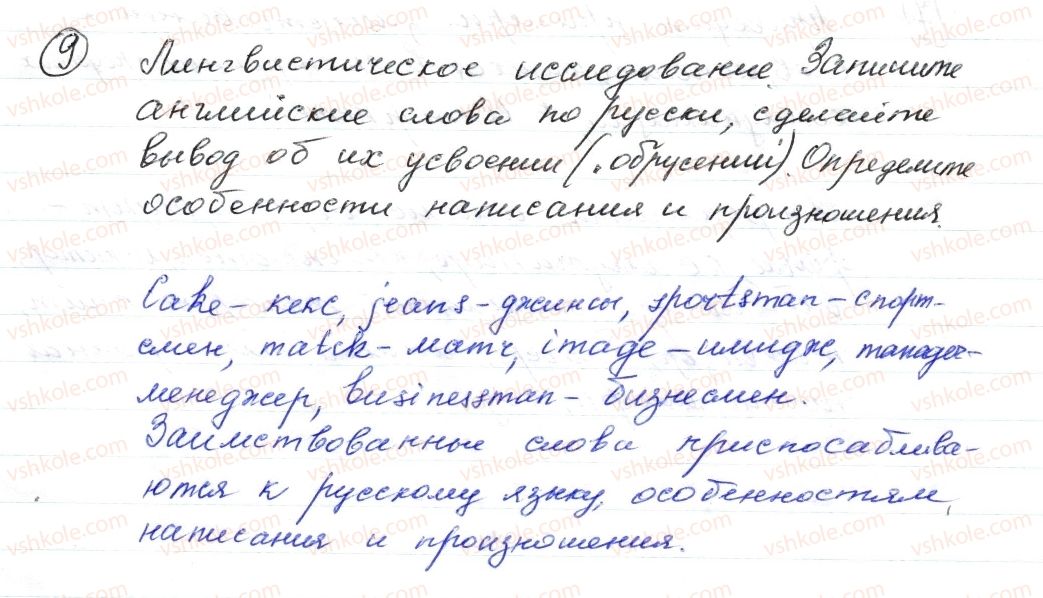 9 Лингвистическое исследование. Запишите
английские слова по русски, сделайте
вывод об их усвоении (. обрусений). Определите
особенности написания и произношения.
Cake - кекс, jeans - джинсы, sportsman - спорт-
смен, match - матч, image - имидж, manager -
менеджер, businessman - бизнесмен.
Заимствованные слова приспосаблива-
ются к русскому языку, особенностям
написания и произношения.